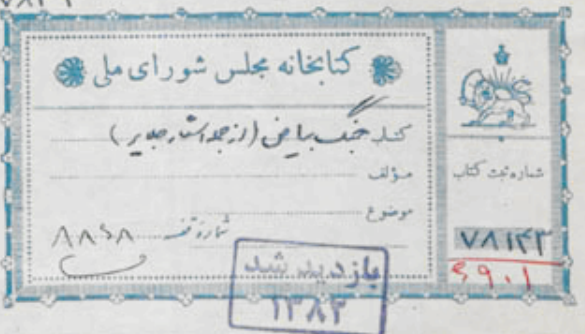 کتابخانه مجلس شورای ملی
کتاب جنگ بیاضی (از جمله اشعار صایر)
مؤلف
موضوع
شماره قفسه ۸۸۶۸
شماره ثبت کتاب
۷۸۱۴۳
۶۹۰۱
بازدید شد
۱۳۸۳